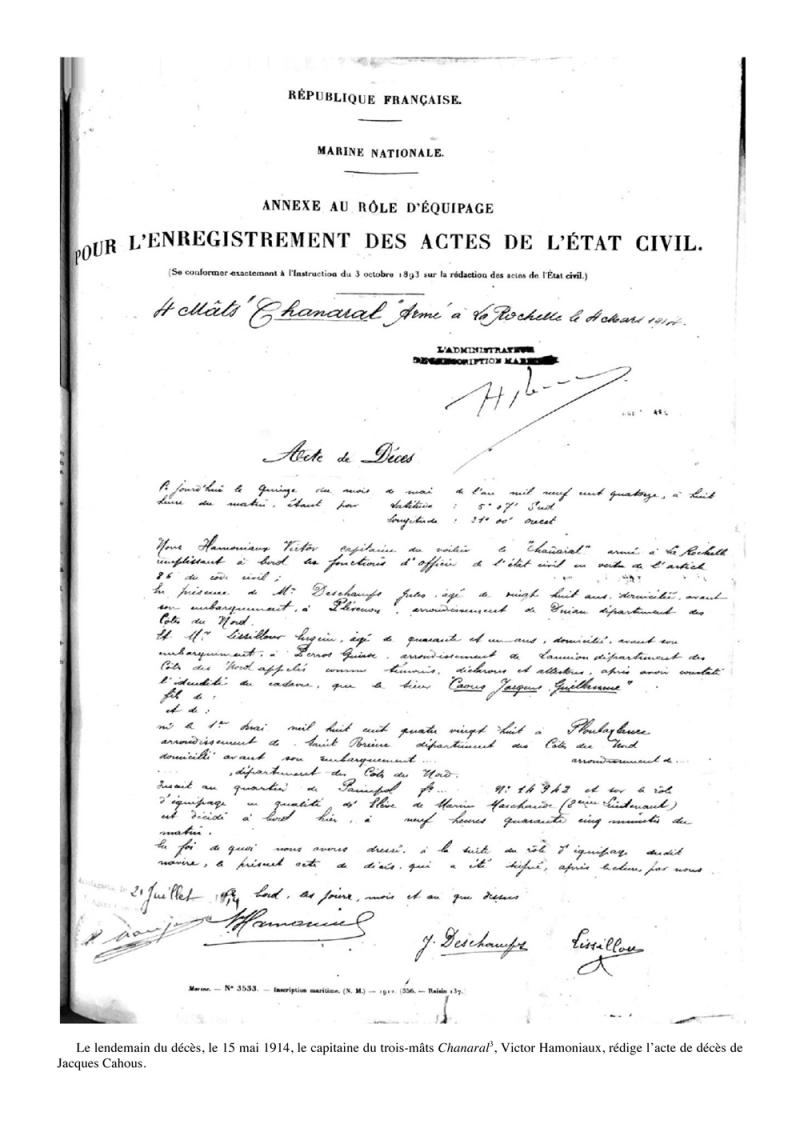 RÉPUBLIQUE FRANÇAISE.
MARINE NATIONALE.
ANNEXE AU RÔLE D'ÉQUIPAGE
POUR L'ENREGISTREMENT DES ACTES DE L'ÉTAT CIVIL.
(Se conformer exactement à l'Instruction du 3 octobre 1893 sur la rédaction des actes de l'État civil.)
4 Mâts "Chanaral" Armé à La Rochelle le 4 Mars 1914.
L'ADMINISTRATEUR
Acte de Déces
jourd'hui le Quinze du mois de mai de l'an mil neuf cent quatorze, à huit
heure du matin, étant par Latitude : 5° 07' Sud
Longitude : 31° 00' ouest
Nous Hamoniaux Victor capitaine du voilier le "Chañaral" armé à La Rochelle
remplissant à bord les fonctions d'officier de l'état civil en vertu de l'article
86 du code civil ;
En présence de Mr Deschamps Jules, âgé de vingt huit ans, domicilié, avant
son embarquement, à Plévenon, arrondissement de Dinan département des
Côtes du Nord.
Et Mr Lissillour âgé de quarante et un ans, domicilié, avant son
embarquement, à Perros Guirec, arrondissement de Lannion département des
Côtes du Nord appelés comme témoins, déclarons et attestons, après avoir constaté
l'identité du cadavre, que le sieur "Caous Jacques Guillaume"
fils de :
et de :
né le 1er Mai mil huit cent quatre vingt huit à
arrondissement de Saint Brieuc département des Côtes du Nord
domicilié avant son embarquement ... arrondissement de ...
département des Côtes du Nord.
Inscrit au quartier de Paimpol N° 14942 et sur le rôle
d'équipage en qualité d'Elève de Marine Marchande (2ème Lieutenant)
est décédé à bord hier, à neuf heures quarante cinq minutes du
matin.
En foi de quoi nous avons dressé, à la suite du rôle d'équipage dudit
navire, le présent acte de décès, qui a été signé, après lecture, par nous
21 Juillet bord, les jours, mois et an que dessus
J. Deschamps Lissillour
Marine. — N° 3533. — Inscription maritime. (N. M.) —
Le lendemain du décès, le 15 mai 1914, le capitaine du trois-mâts Chanaral³, Victor Hamoniaux, rédige l'acte de décès de
Jacques Cahous.